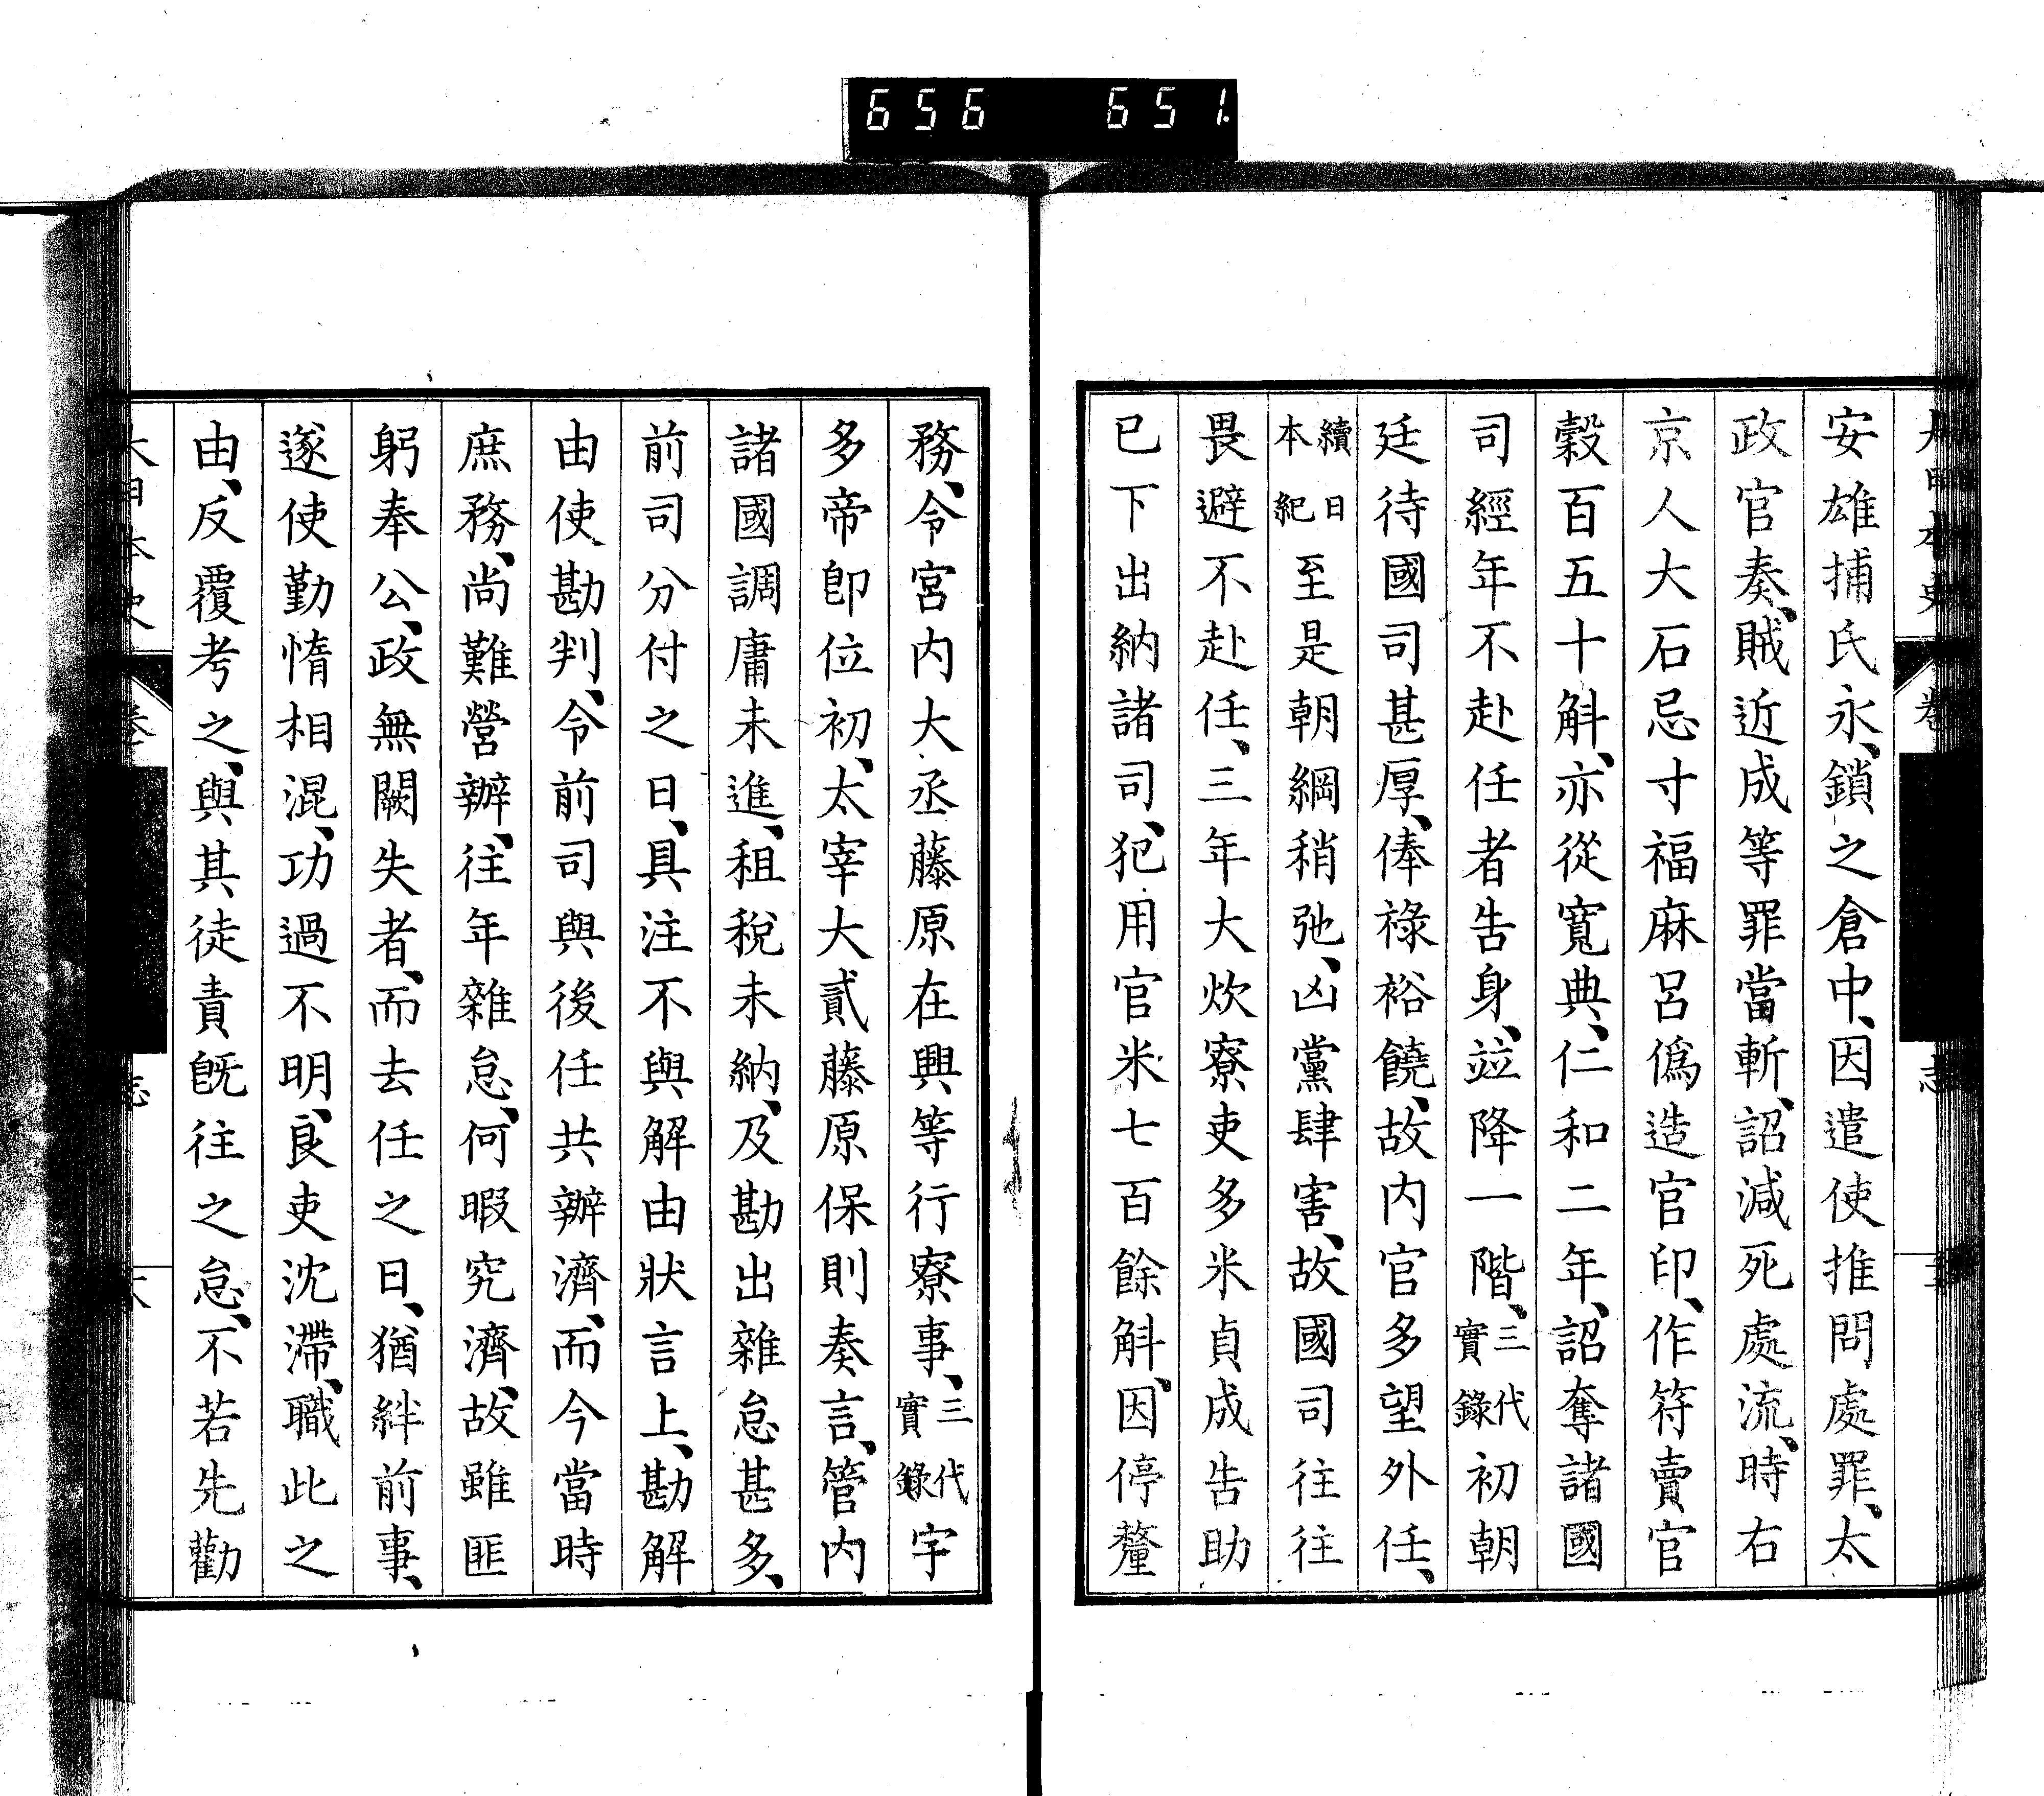 656 651.
大日本史 卷 志
安雄捕氏永、鎖之倉中、因遣使推問處罪、太
政官奏、賊近成等罪當斬、詔減死處流、時右
京人大石忌寸福麻呂僞造官印、作符賣官
穀百五十斛、亦從寬典、仁和二年、詔奪諸國
司經年不赴任者告身、竝降一階、三代實錄初朝
廷待國司甚厚、俸祿裕饒、故内官多望外任、
續日本紀至是朝綱稍弛、凶黨肆害、故國司往往
畏避不赴任、三年大炊寮吏多米貞成告助
已下出納諸司、犯用官米七百餘斛、因停釐
務、令宮内大丞藤原在興等行寮事、三代實錄宇
多帝卽位初、太宰大貳藤原保則奏言、管内
諸國調庸未進、租稅未納、及勘出雜怠甚多、
前司分付之日、具注不與解由狀言上、勘解
由使勘判、令前司與後任共辦濟、而今當時
庶務、尚難營辦、往年雜怠、何暇究濟、故雖匪
躬奉公、政無闕失者、而去任之日、猶絆前事、
遂使勤惰相混、功過不明、良吏沈滯、職此之
由、反覆考之、與其徒責旣往之怠、不若先勸
大日本史 卷 志